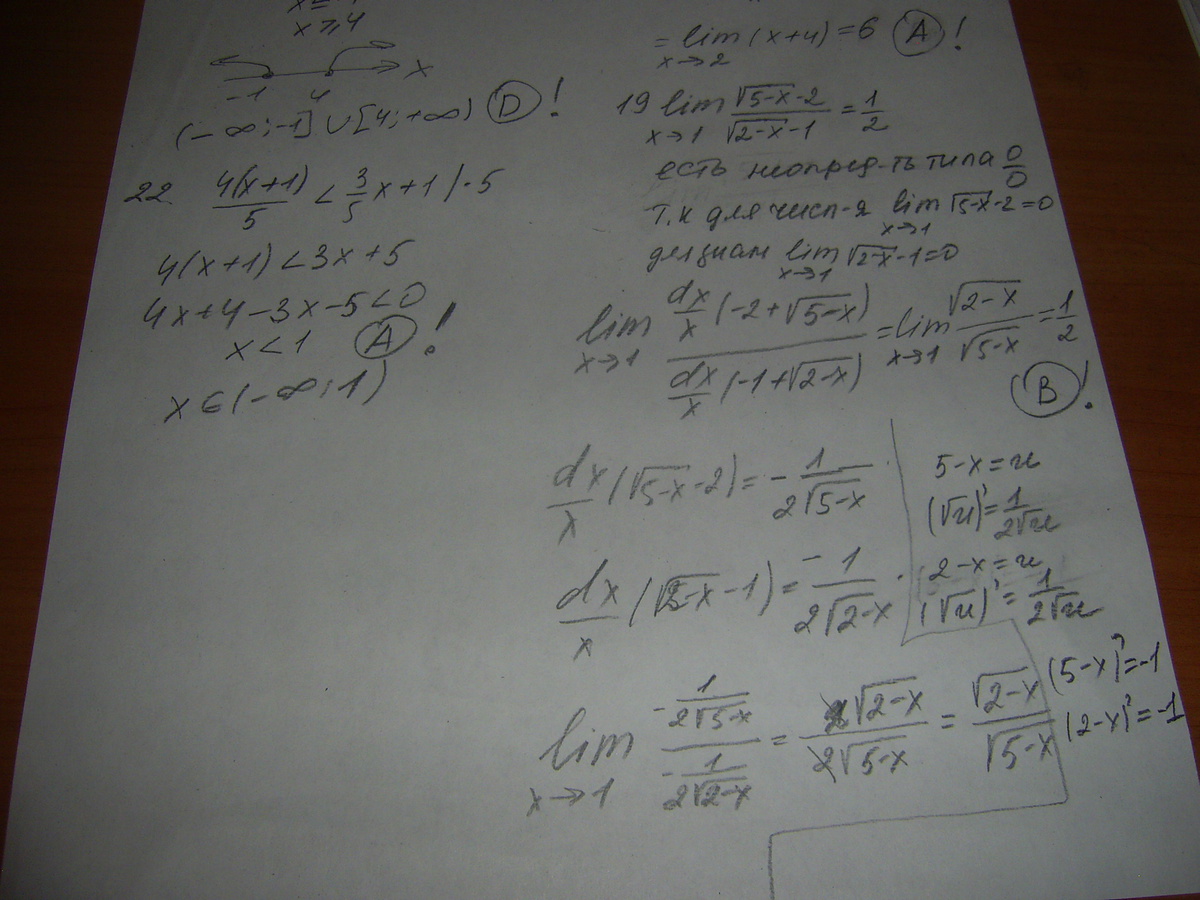 x ≥ 4
-1 4 x
(-∞;-1] ∪ [4;+∞) D !
22. 4(x+1)/5 < 3/5 x + 1 | · 5
4(x+1) < 3x + 5
4x + 4 - 3x - 5 < 0
x < 1 A !
x ∈ (-∞; 1)
= lim x→2 (x+4) = 6 A !
19 lim x→1 (√(5-x) - 2)/(√(2-x) - 1) = 1/2
есть неопред-ть типа 0/0
т.к для числ-я lim x→1 √(5-x) - 2 = 0
lim x→1 √(2-x) - 1 = 0
lim x→1 (dx/x (-2 + √(5-x)))/(dx/x (-1 + √(2-x))) = lim x→1 √(2-x)/√(5-x) = 1/2
B !
dx/x (√(5-x) - 2) = - 1/(2√(5-x)) ·
dx/x (√(2-x) - 1) = - 1/(2√(2-x)) ·
5-x = u
(√u)' = 1/(2√u)
2-x = u
(√u)' = 1/(2√u)
(5-x)' = -1
(2-x)' = -1
lim x→1 (- 1/(2√(5-x)))/(- 1/(2√(2-x))) = 2√(2-x)/(2√(5-x)) = √(2-x)/√(5-x)